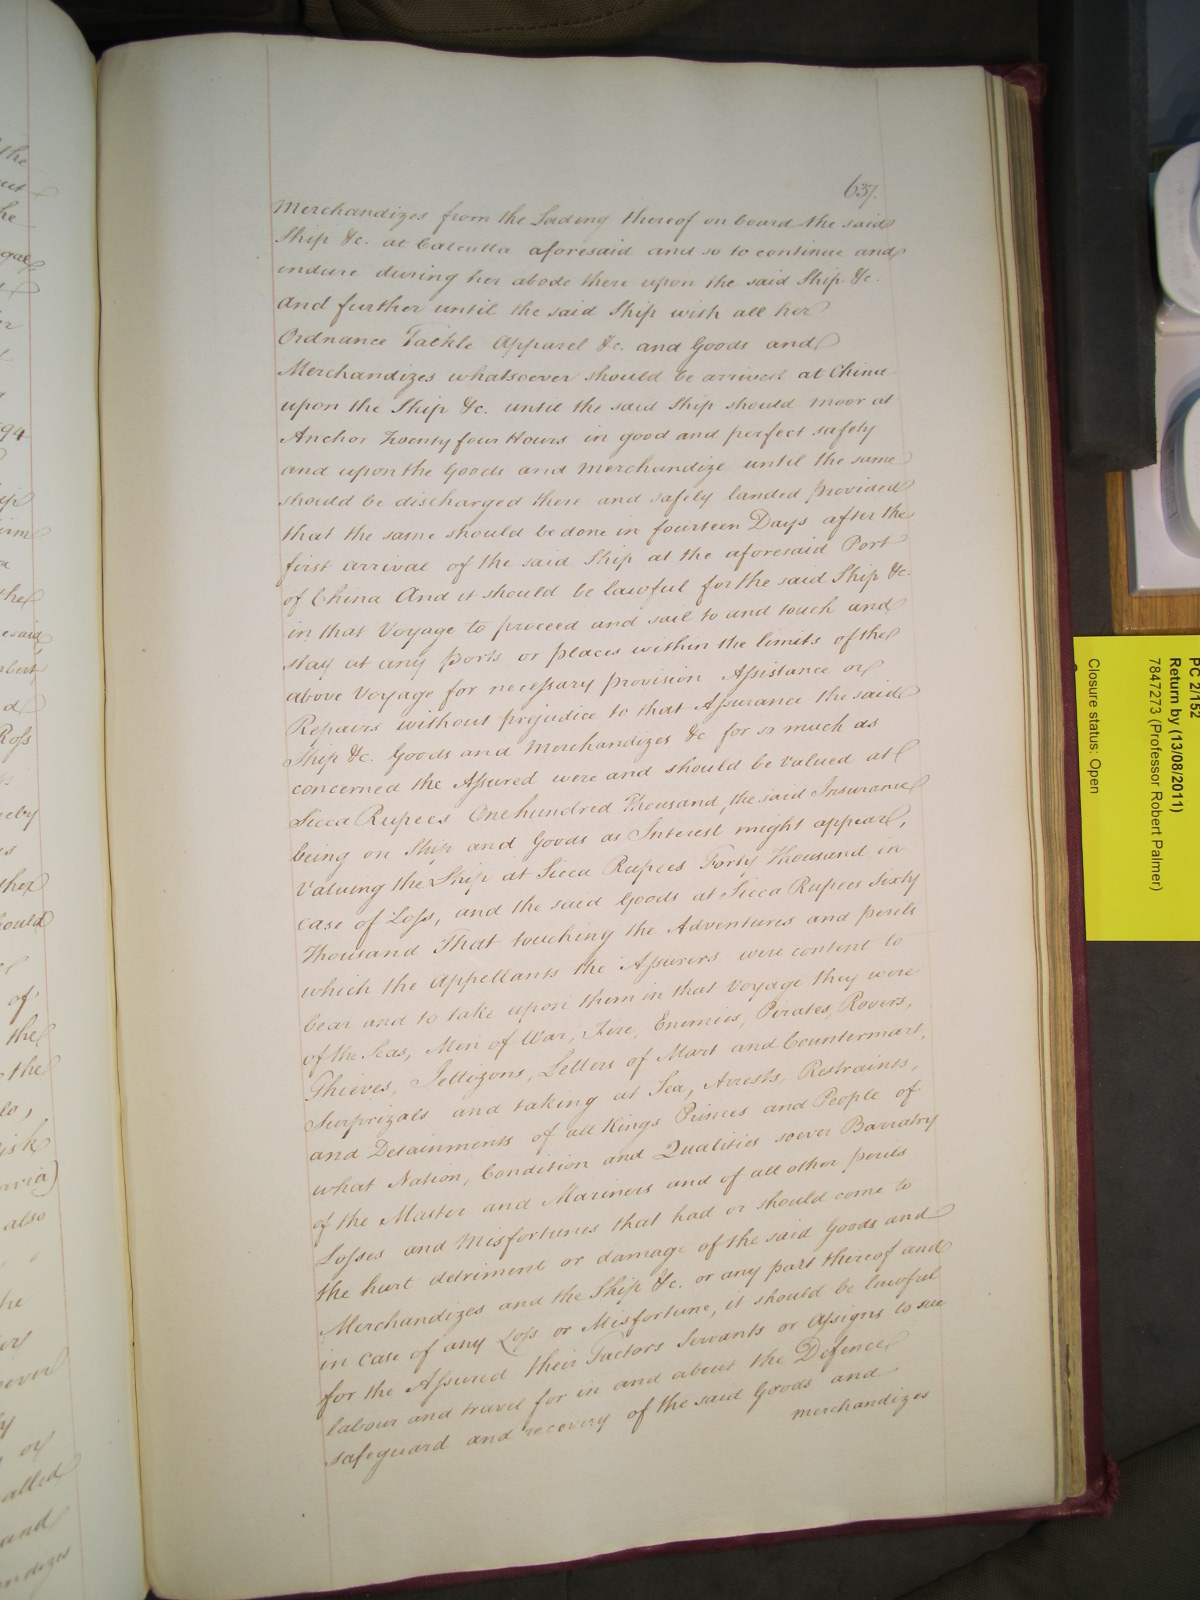 637.
Merchandizes from the Lading thereof on board the said
Ship &c. at Calcutta aforesaid and so to continue and
indure during her abode there upon the said Ship &c.
and further until the said Ship with all her
Ordnance Tackle Apparel &c. and Goods and
Merchandizes whatsoever should be arrived at China
upon the Ship &c. until the said Ship should moor at
Anchor Twenty four Hours in good and perfect safety
and upon the Goods and Merchandize until the same
should be discharged there and safely landed provided
that the same should be done in fourteen Days after the
first arrival of the said Ship at the aforesaid Port
of China And it should be lawful for the said Ship &c.
in that Voyage to proceed and sail to and touch and
stay at any ports or places within the limits of the
above Voyage for necessary provision Assistance or
Repairs without prejudice to that Assurance the said
Ship &c. Goods and Merchandizes &c for so much as
concerned the Assured were and should be valued at
Sicca Rupees One hundred Thousand, the said Insurance
being on Ship and Goods as Interest might appear,
valuing the Ship at Sicca Rupees Forty Thousand in
case of Loss, and the said Goods at Sicca Rupees Sixty
Thousand That touching the Adventures and perils
which the Appellants the Assurers were content to
bear and to take upon them in that Voyage they were
of the Seas, Men of War, Fire, Enemies, Pirates, Rovers,
Thieves, Jettizons, Letters of Mart and Countermart,
Surprizals and taking at Sea, Arrests, Restraints,
and Detainments of all Kings Princes and People of
what Nation, Condition and Qualities soever Barratry
of the Master and Mariners and of all other perils
Losses and Misfortunes that had or should come to
the hurt detriment or damage of the said Goods and
Merchandizes and the Ship &c. or any part thereof and
in case of any Loss or Misfortune, it should be lawful
for the Assured their Factors Servants or Assigns to sue
labour and travel for in and about the Defence
safeguard and recovery of the said Goods and
merchandizes
PC 2/152
Return by (13/08/2011)
7847273 (Professor Robert Palmer)
Closure status: Open